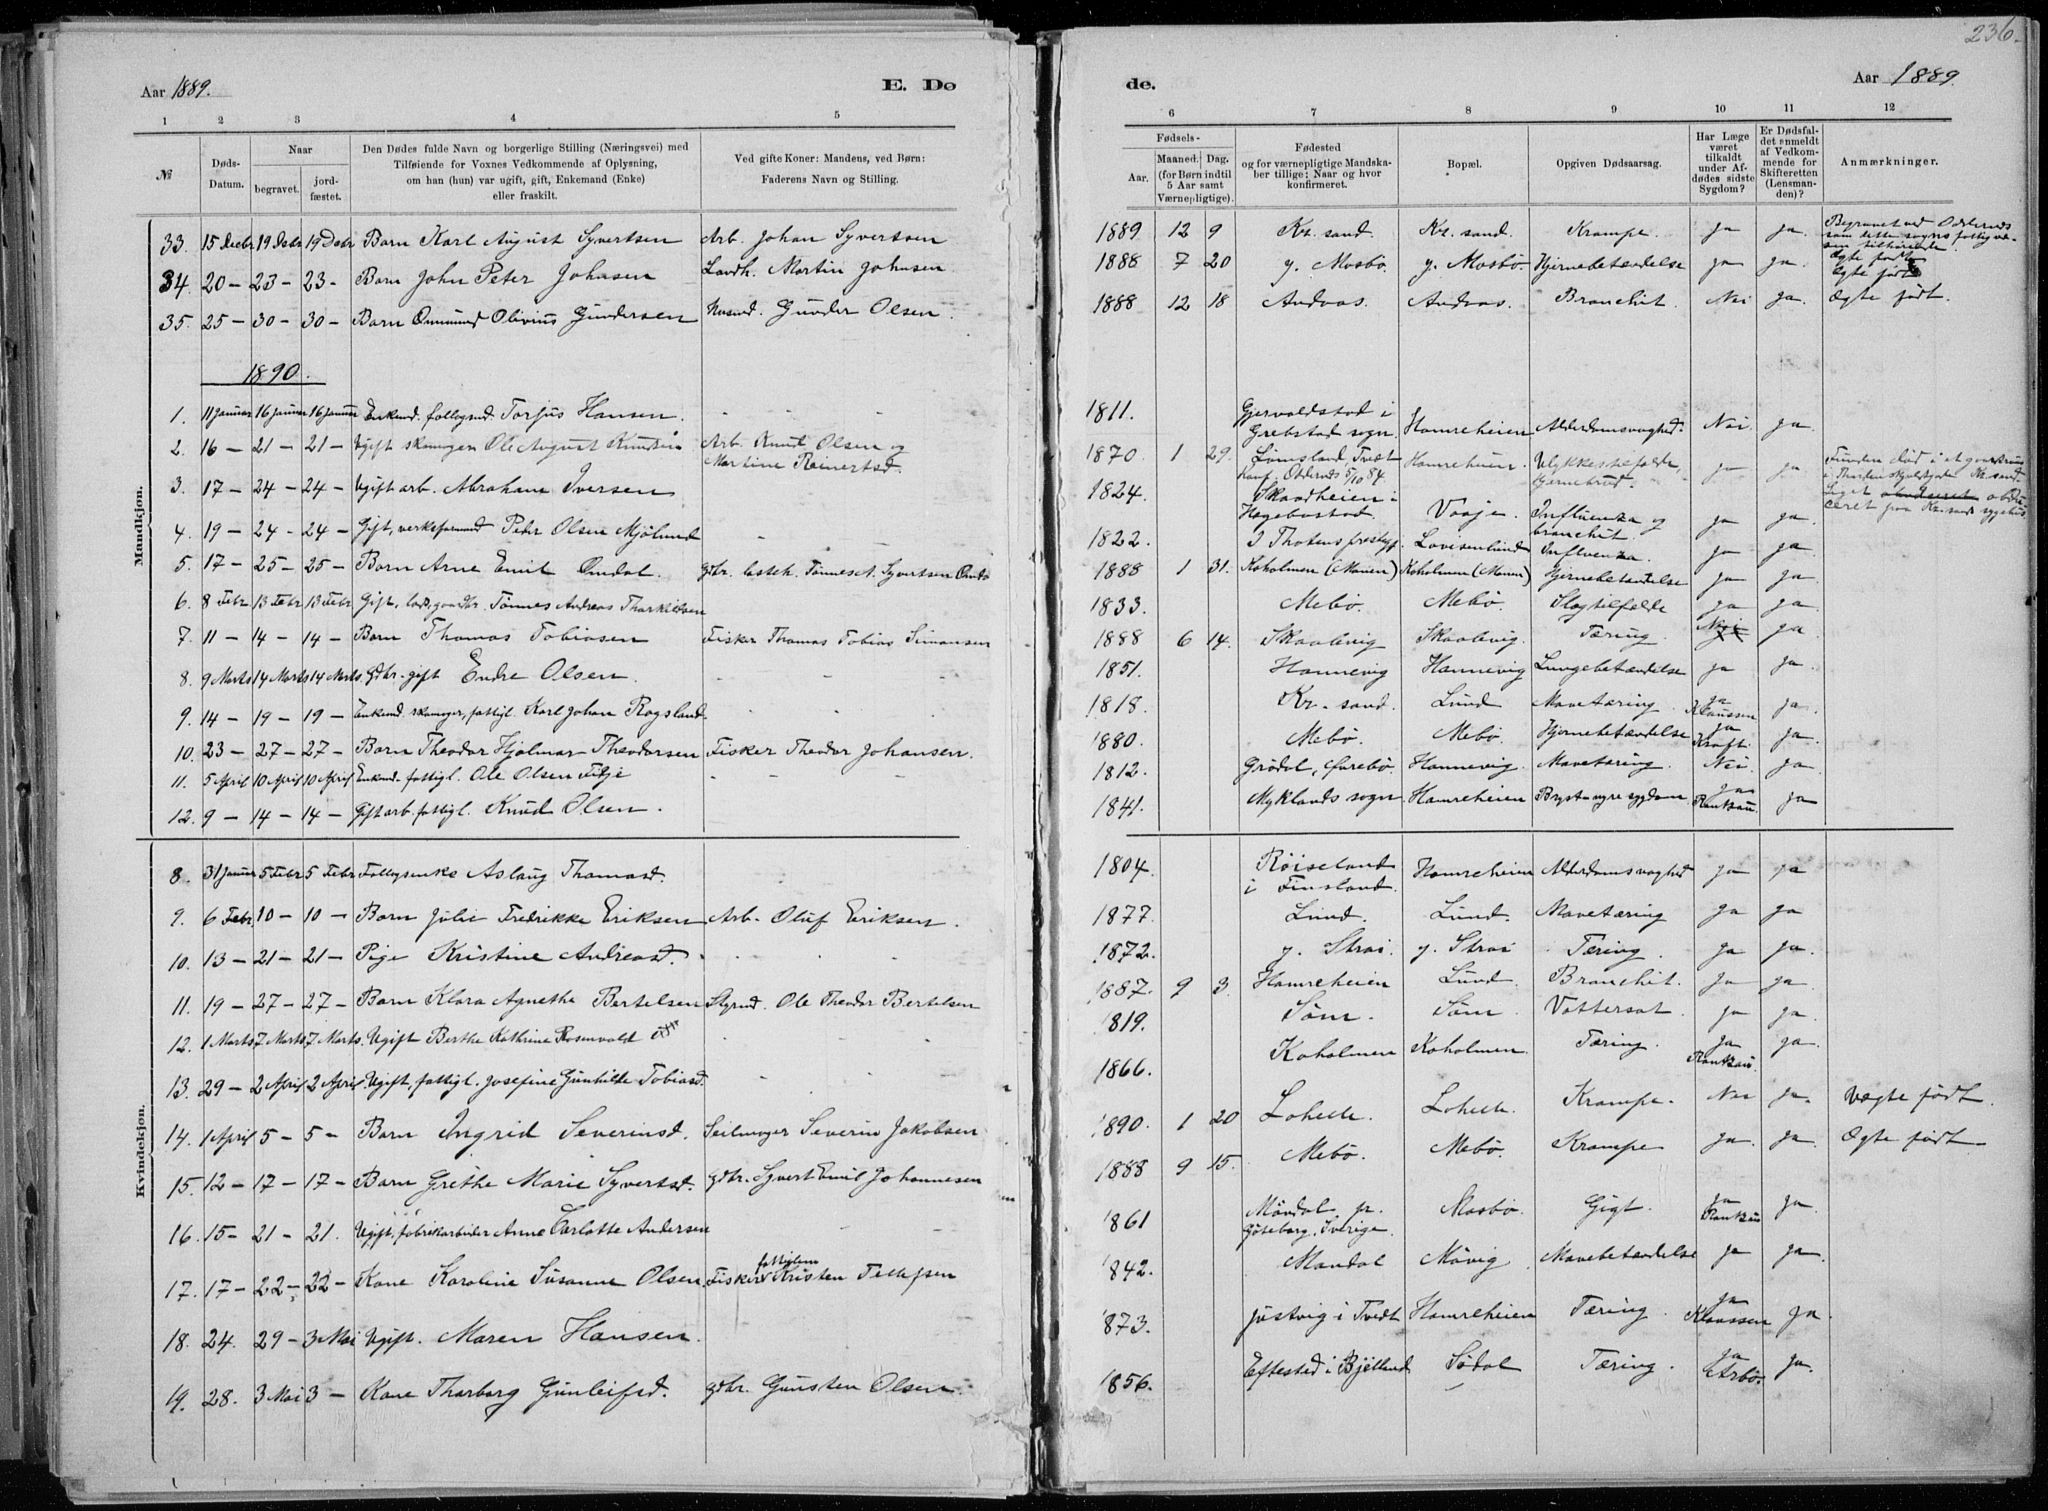 236.
Aar 1889. E. Dø de. Aar 1889.
1 2 3 4 5 6 7 8 9 10 11 12
№
Døds-Datum.
Naar
begravet.
jord-fæstet.
Den Dødes fulde Navn og borgerlige Stilling (Næringsvei) med
Tilføiende for Voxnes Vedkommende af Oplysning,
om han (hun) var ugift, gift, Enkemand (Enke)
eller fraskilt.
Ved gifte Koner: Mandens, ved Børn:
Faderens Navn og Stilling.
Fødsels-
Aar. Maaned. Dag.
(for Børn indtil
5 Aar samt
Værnepligtige).
Fødested
og for værnepligtige Mandska-
ber tillige: Naar og hvor
konfirmeret.
Bopæl.
Opgiven Dødsaarsag.
Har Læge
været
tilkaldt
under Af-
dødes sidste
Sygdom?
Er Dødsfal-
det anmeldt
af Vedkom-
mende for
Skifteretten
(Lensman-
den)?
Anmærkninger.
Mandkjøn.
33. 15 Decbr 19 Decbr 19 Decbr Barn Karl August Syvertsen Arb. Johan Syvertsen 1889 12 9 Kr. sand. Kr. sand. Krampe. ja ja. Begravet ved Oddernes som dette sogns fattigvæsen tilhørende. Ægte født
34. 20 – 23 – 23 – Barn John Peter Johnsen Landh. Martin Johnsen 1888 7 20 y. Mosbø. y. Mosbø. Hjernebetændelse ja ja. Ægte født
35. 25 – 30 – 30 – Barn Ommund Olivius Gundersen Husmd. Gunder Olsen. 1888 12 18 Andaas. Andaas. Bronchit. Nei ja. Ægte født.
1890.
1. 11 Januar 16 Januar 16 Januar Enkemd. follogsmd. Torjus Hansen. 1811. Gjervoldstad i Grebstad sogn. Hamreheien Alderdomsvaghed. Nei. ja.
2. 16 – 21 – 21 – Ugift skomager Ole August Knudsen Arb. Knud Olsen og Martine Reinertsd. 1870. 1 29. Lømsland, Tvedt Konf. Oddernes 5/10 84. Hamreheien. Ulykkestilfælde, ja ja. Funden død i et
3. 17 – 24 – 24 – Ugift arb. Abraham Iversen 1824. Skaadheien i Hægebostad. Vaaje. Influenza og bronchit. ja ja.
4. 19 – 24 – 24 – Gift, verksformand Peder Olsen Mjølund 1822. I Thotens prestegj. Lovisenlund Influenza. ja ja.
5. 17 – 25 – 25 – Barn Arne Emil Omdal. gdbr. Tønnes A. Syvertsen Omdal 1888 1 31. Koholmen (Manen) Koholmen (Manen) Hjernebetændelse ja ja.
6. 8 Febr. 13 Febr. 13 Febr. Gift, Tønnes Andreas Tharkildsen 1833. Mebø. Mebø. Slagtilfælde ja ja
7. 11 – 14 – 14 – Barn Thomas Tobiasen Fisker Thomas Tobias Simonsen 1888 6 14. Skaalevig Skaalevig Tæring Nei ja.
8. 9 Marts 14 Marts 14 Marts. Gdbr. gift Endre Olsen. 1851. Hannevig Hannevig Lungebetændelse ja ja.
9. 14 – 19 – 19 – Enkemd. skomager, fattigl. Karl Johan Rogsland. 1818. Kr. sand. Lund Mavetæring ja Klaussen ja.
10. 23 – 27 – 27 – Barn Theodor Hjalmar Theodorsen Fisker Theodor Johansen. 1880. Mebø. Mebø. Hjernebetændelse ja Kraft ja.
11. 5 April 10 April 10 April Enkemd. fattigl. Ole Olsen Fidje 1812. Grødal, Øvrebø. Hannevig. Mavetæring. Nei. ja
12. 9 – 14 – 14 – Gift arb. fattigl. Knud Olsen. 1841. Myklands sogn Hamreheien Bryst- nyresygdom ja Rantzau ja
Kvindekjøn.
8. 31 Januar 5 Febr. 5 Febr. Follogsenke Aslaug Thomasd. 1804. Røiseland i Finsland. Hamreheien Alderdomsvaghed ja ja
9. 6 Febr. 10 – 10 – Barn Julie Fredrikke Eriksen Arb. Oluf Eriksen. 1877. Lund. Lund. Mavetæring ja ja
10. 13 – 21 – 21 – Pige Kristine Andreasd. 1872. y. Strai. y. Strai Tæring. ja ja.
11. 19 – 27 – 27 – Barn Klara Agnethe Bertelsen Styrmd. Ole Theodor Bertelsen 1887. 9 3. Hamreheien Lund. Bronchit. ja ja.
12. 1 Marts 7 Marts 7 Marts. Ugift Berthe Kathrine Rosenvold 1819. Søm. Søm. Vattersot. ja ja.
13. 29 – 2 April 2 April. Ugift, fattigl. Josefine Gunhilde Tobiasd. 1866. Koholmen Koholmen. Tæring. ja Rantzau. ja.
14. 1 April 5 – 5 – Barn Ingrid Severinsd. Seilmager Severin Jakobsen 1890. 1 20 Lohelle. Lohelle. Krampe. Nei ja. Uægte født.
15. 12 – 17 – 17 – Barn Grethe Marie Syvertsd. gdbr. Syvert Emil Johannesen 1888 9 15. Mebø. Mebø. Krampe ja. ja. Ægte født.
16. 15 – 21 – 21. Ugift, fabrikarbeider Anne Carlotte Andersen 1861 Møndal pr. Göteborg, Sverige. Mosbø. Gigt. ja Rantzau ja.
17. 17 – 22 – 22 – Kone Karoline Susanne Olsen. Fisker fattiglem Kristen Tellefsen 1842. Mandal Møvig Mavebetændelse ja ja.
18. 24. 29 – 3 Mai Ugift. Maren Hansen. 1873. Justvig i Tvedt Hamreheien Tæring. ja Klaussen ja.
19. 28. 3 Mai 3 – Kone Tharborg Gunleifsd. gdbr. Gunsten Olsen. 1856. Eftestad i Bjelland Sødal Tæring. ja Arbo. ja.